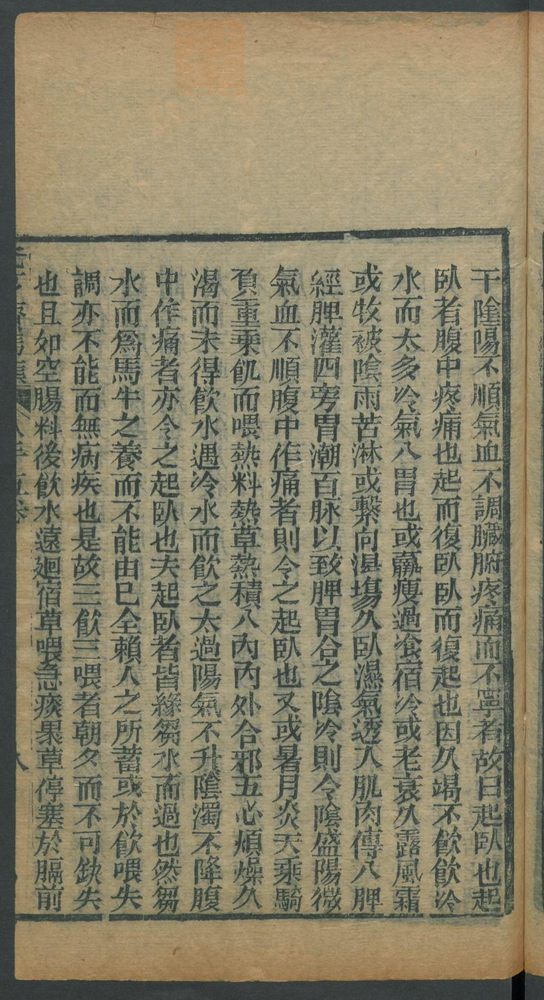 干陰陽不順氣血不調臟腑疼痛而不寧者故曰起臥也起
臥者腹中疼痛也起而復臥臥而復起也因久渴不飲飲冷
水而太多冷氣入胃也或羸瘦過飡宿冷或老衰久露風霜
或牧被陰雨苦淋或繫向濕塲久臥濕氣透入肌肉傳入脾
經脾灌四旁胃潮百脉以致脾胃合之陰冷則令陰盛陽微
氣血不順腹中作痛者則令之起臥也又或暑月炎天乘騎
負重乘飢而喂熱料熱草熱積入內內外合邪五心煩燥久
渴而未得飲水遇冷水而飲之太過陽氣不升陰濁不降腹
中作痛者亦令之起臥也夫起臥者皆綠芻水而過也然芻
水而為馬牛之養而不能由已全賴人之所蓄或於飲喂失
調亦不能而無病疾也是故三飲三喂者朝夕而不可缺失
也且如空腸料後飲水遠廻宿草喂急痰果草停塞於膈前